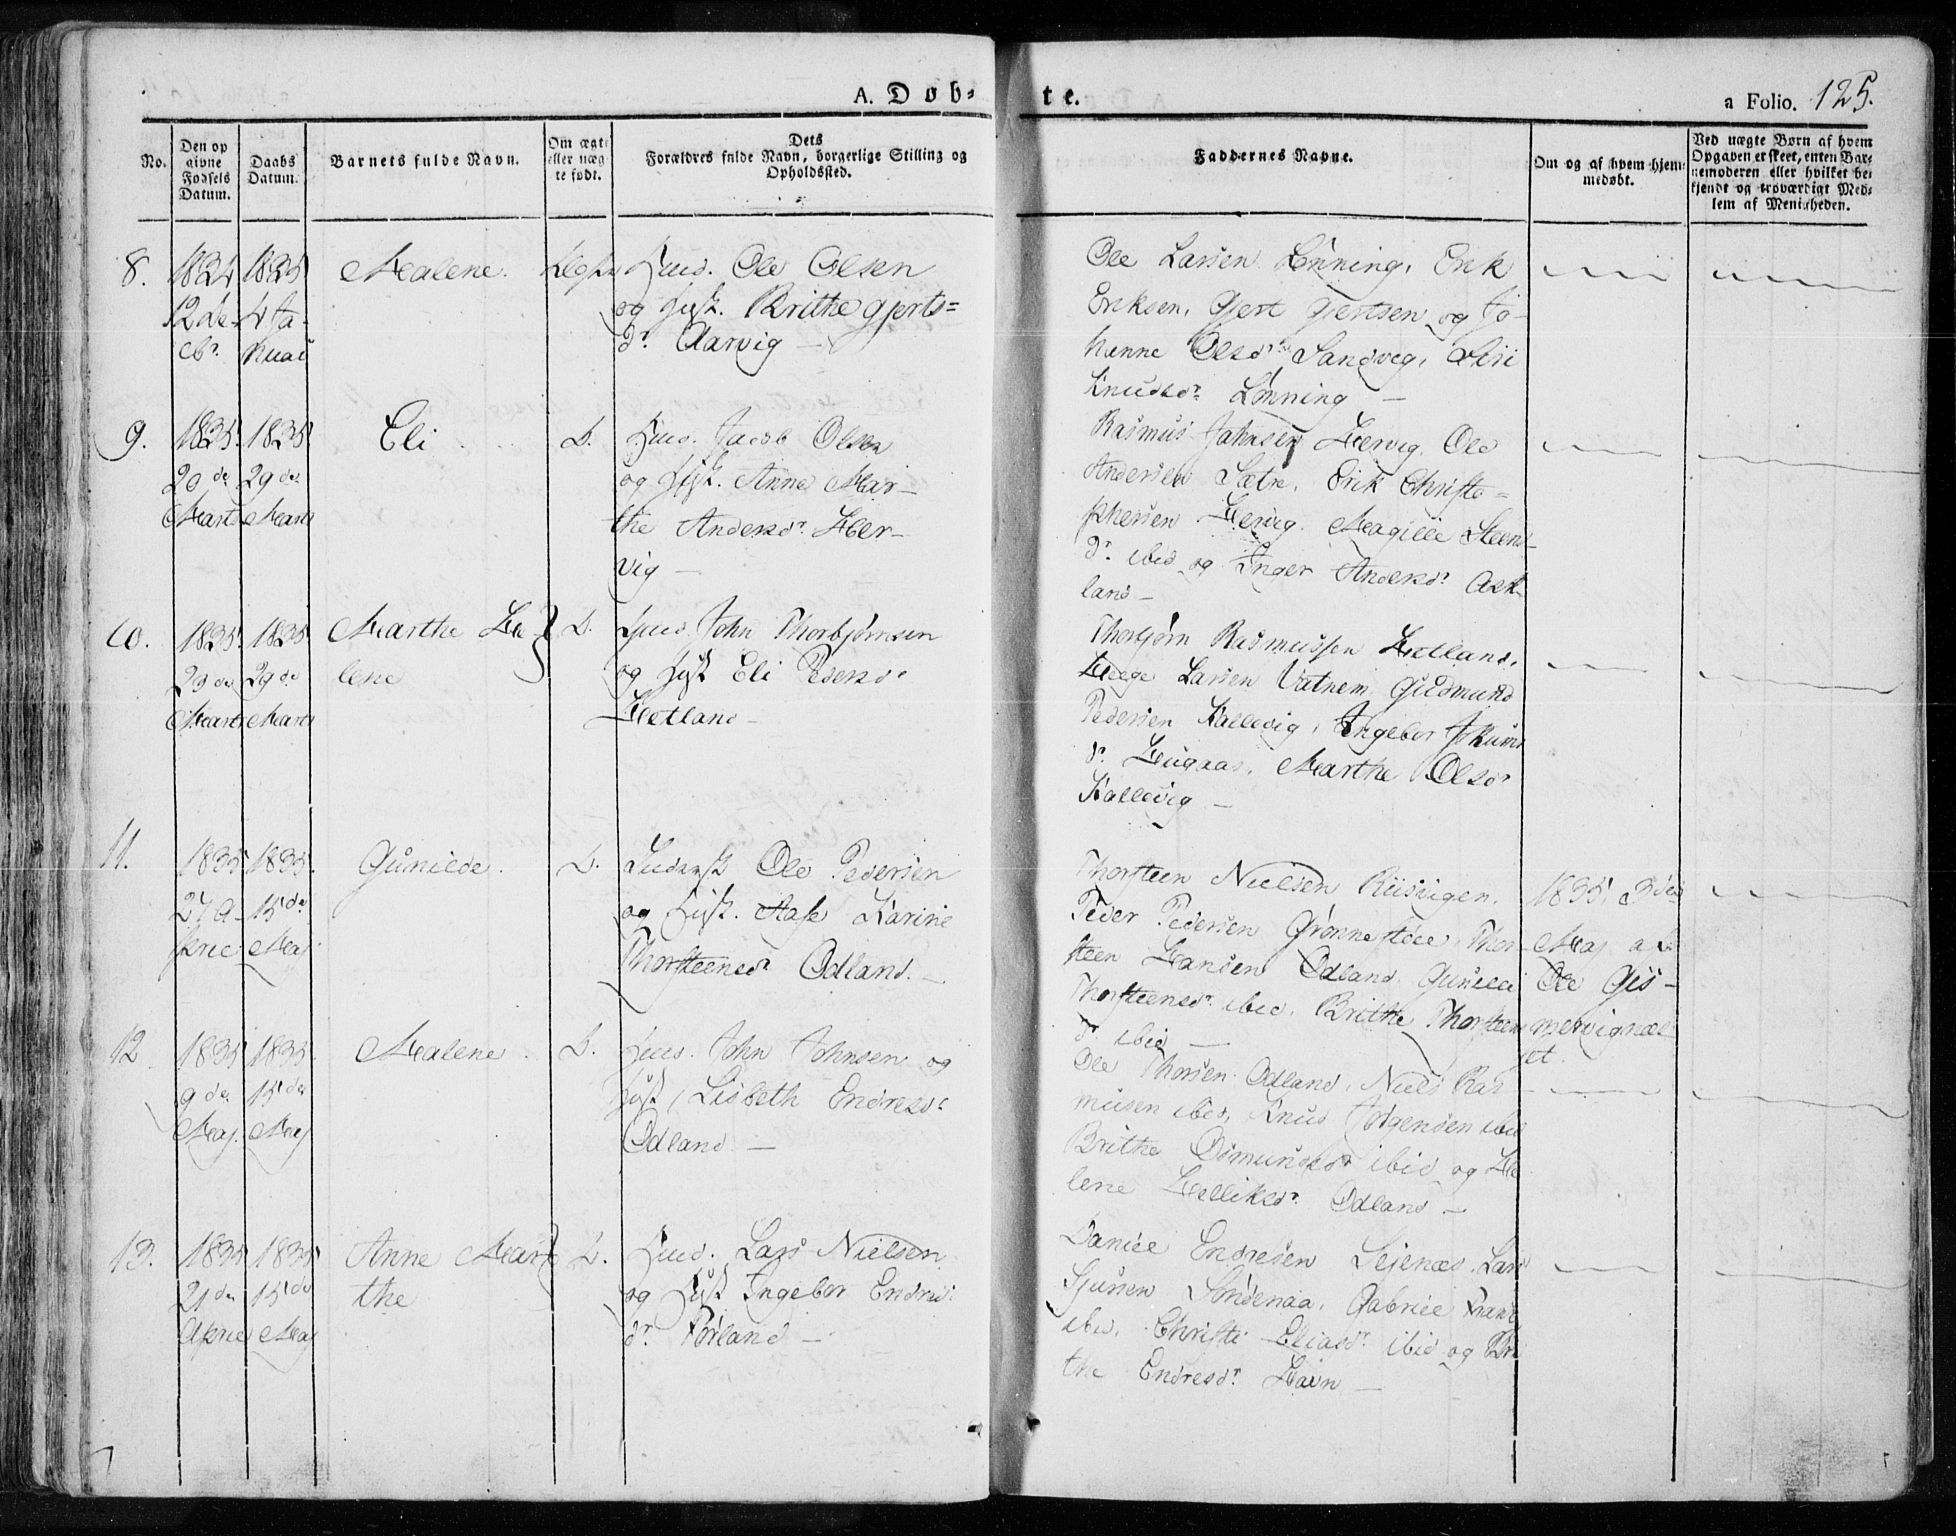 A. Døb-te.
a Folio. 125.
No.
Den op givne Fødsels Datum.
Daabs Datum.
Barnets fulde Navn.
Om ægte eller uægte født.
Dets Forældres fulde Navn, borgerlige Stilling og Opholdssted.
Faddernes Navne.
Om og af hvem hjemmedøbt.
Ved uægte Børn af hvem Opgaven er skeet, enten Barnemoderen eller hvilket bekjendt og troværdigt Medlem af Menigheden.
8.
1834
12 de
cbr
1835
4 Ja-
nuar
Malene.
Huus. Ole Olsen
og Hust. Brithe Gjerts-
dr. Aarvig —
Ole Larsen Lønning, Erik
Eriksen, Gjert Gjertsen og Jo-
hanne Olsdr Sandvig, Siri
Knudsdr. Lønning —
9.
1835
20 de
Marts
1835
29 de
Marts
Eli
D.
Huus. Jacob Olsen
og Hust. Anne Mar-
the Andersdr. Her-
vig —
Rasmus Johnsen Hervig, Ole
Andersen Sætre, Erik Christo-
phersen Hervig, Magille Steens-
dr. ibid og Inger Andersdr Ask-
land —
10.
1835
23 de
Marts
1835
29 de
Marts
Marthe He-
lene
D.
Huus. John Thorbjørnsen
og Hust Eli Pedersdr
Hetland —
Thorbjørn Rasmussen Hetland,
Helge Larsen Vatnem, Gudmund
Pedersen Kallevig, Ingebor Jokums
dr. Haugaas, Marthe Olsdr
Kallevig —
11.
1835
27 A-
pril
1835.
15de
Maj
Gunilde.
D.
Ole Pedersen
og Hust. Aase Karine
Thorsteensdr Odland. —
Thorsteen Nielsen Riisvigen,
Peder Pedersen Grønnestøe, Thor-
steen Hansen Odland, Gunild
Thorsteensdr. ibid, Brithe Thorsteens
dr. ibid —
1835, 3die
Maj af
Ole Gis-
mervignæs
et.
12
1835
9 de
Maj.
1835.
15de
Maj
Malene.
D.
Huus. John Johnsen og
Hust. Lisbeth Endresdr
Odland —
Ole Thorsen Odland, Niels Ras-
musen ibid, Knud Jørgensen ibid
Brithe Osmundsdr ibid og He
lene Helliksdr. Odland —
13.
1835
21 de
April
1835
15de
Maj
Anne Mar-
the
D.
Huus. Lars Nielsen
og Hust Ingebor Endres-
dr. Førland —
Daniel Endresen Leienæs, Lars
Sjursen Søndenaa, Gabriel
ibid. Christi Eliasdr. ibid og Bri
the Endresdr. Havn —